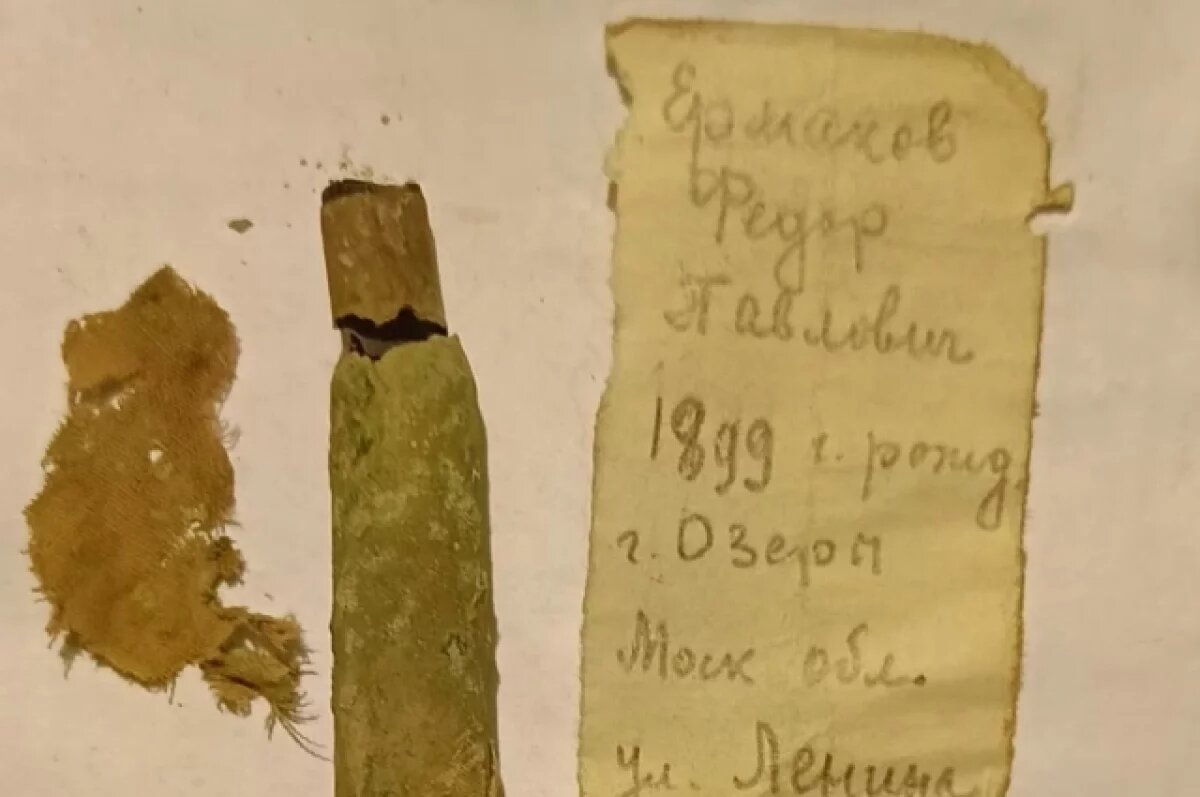 Ермаков
Федор
Павлович
1899 г. рожд
г. Озеры
Моск обл.
ул. Ленина